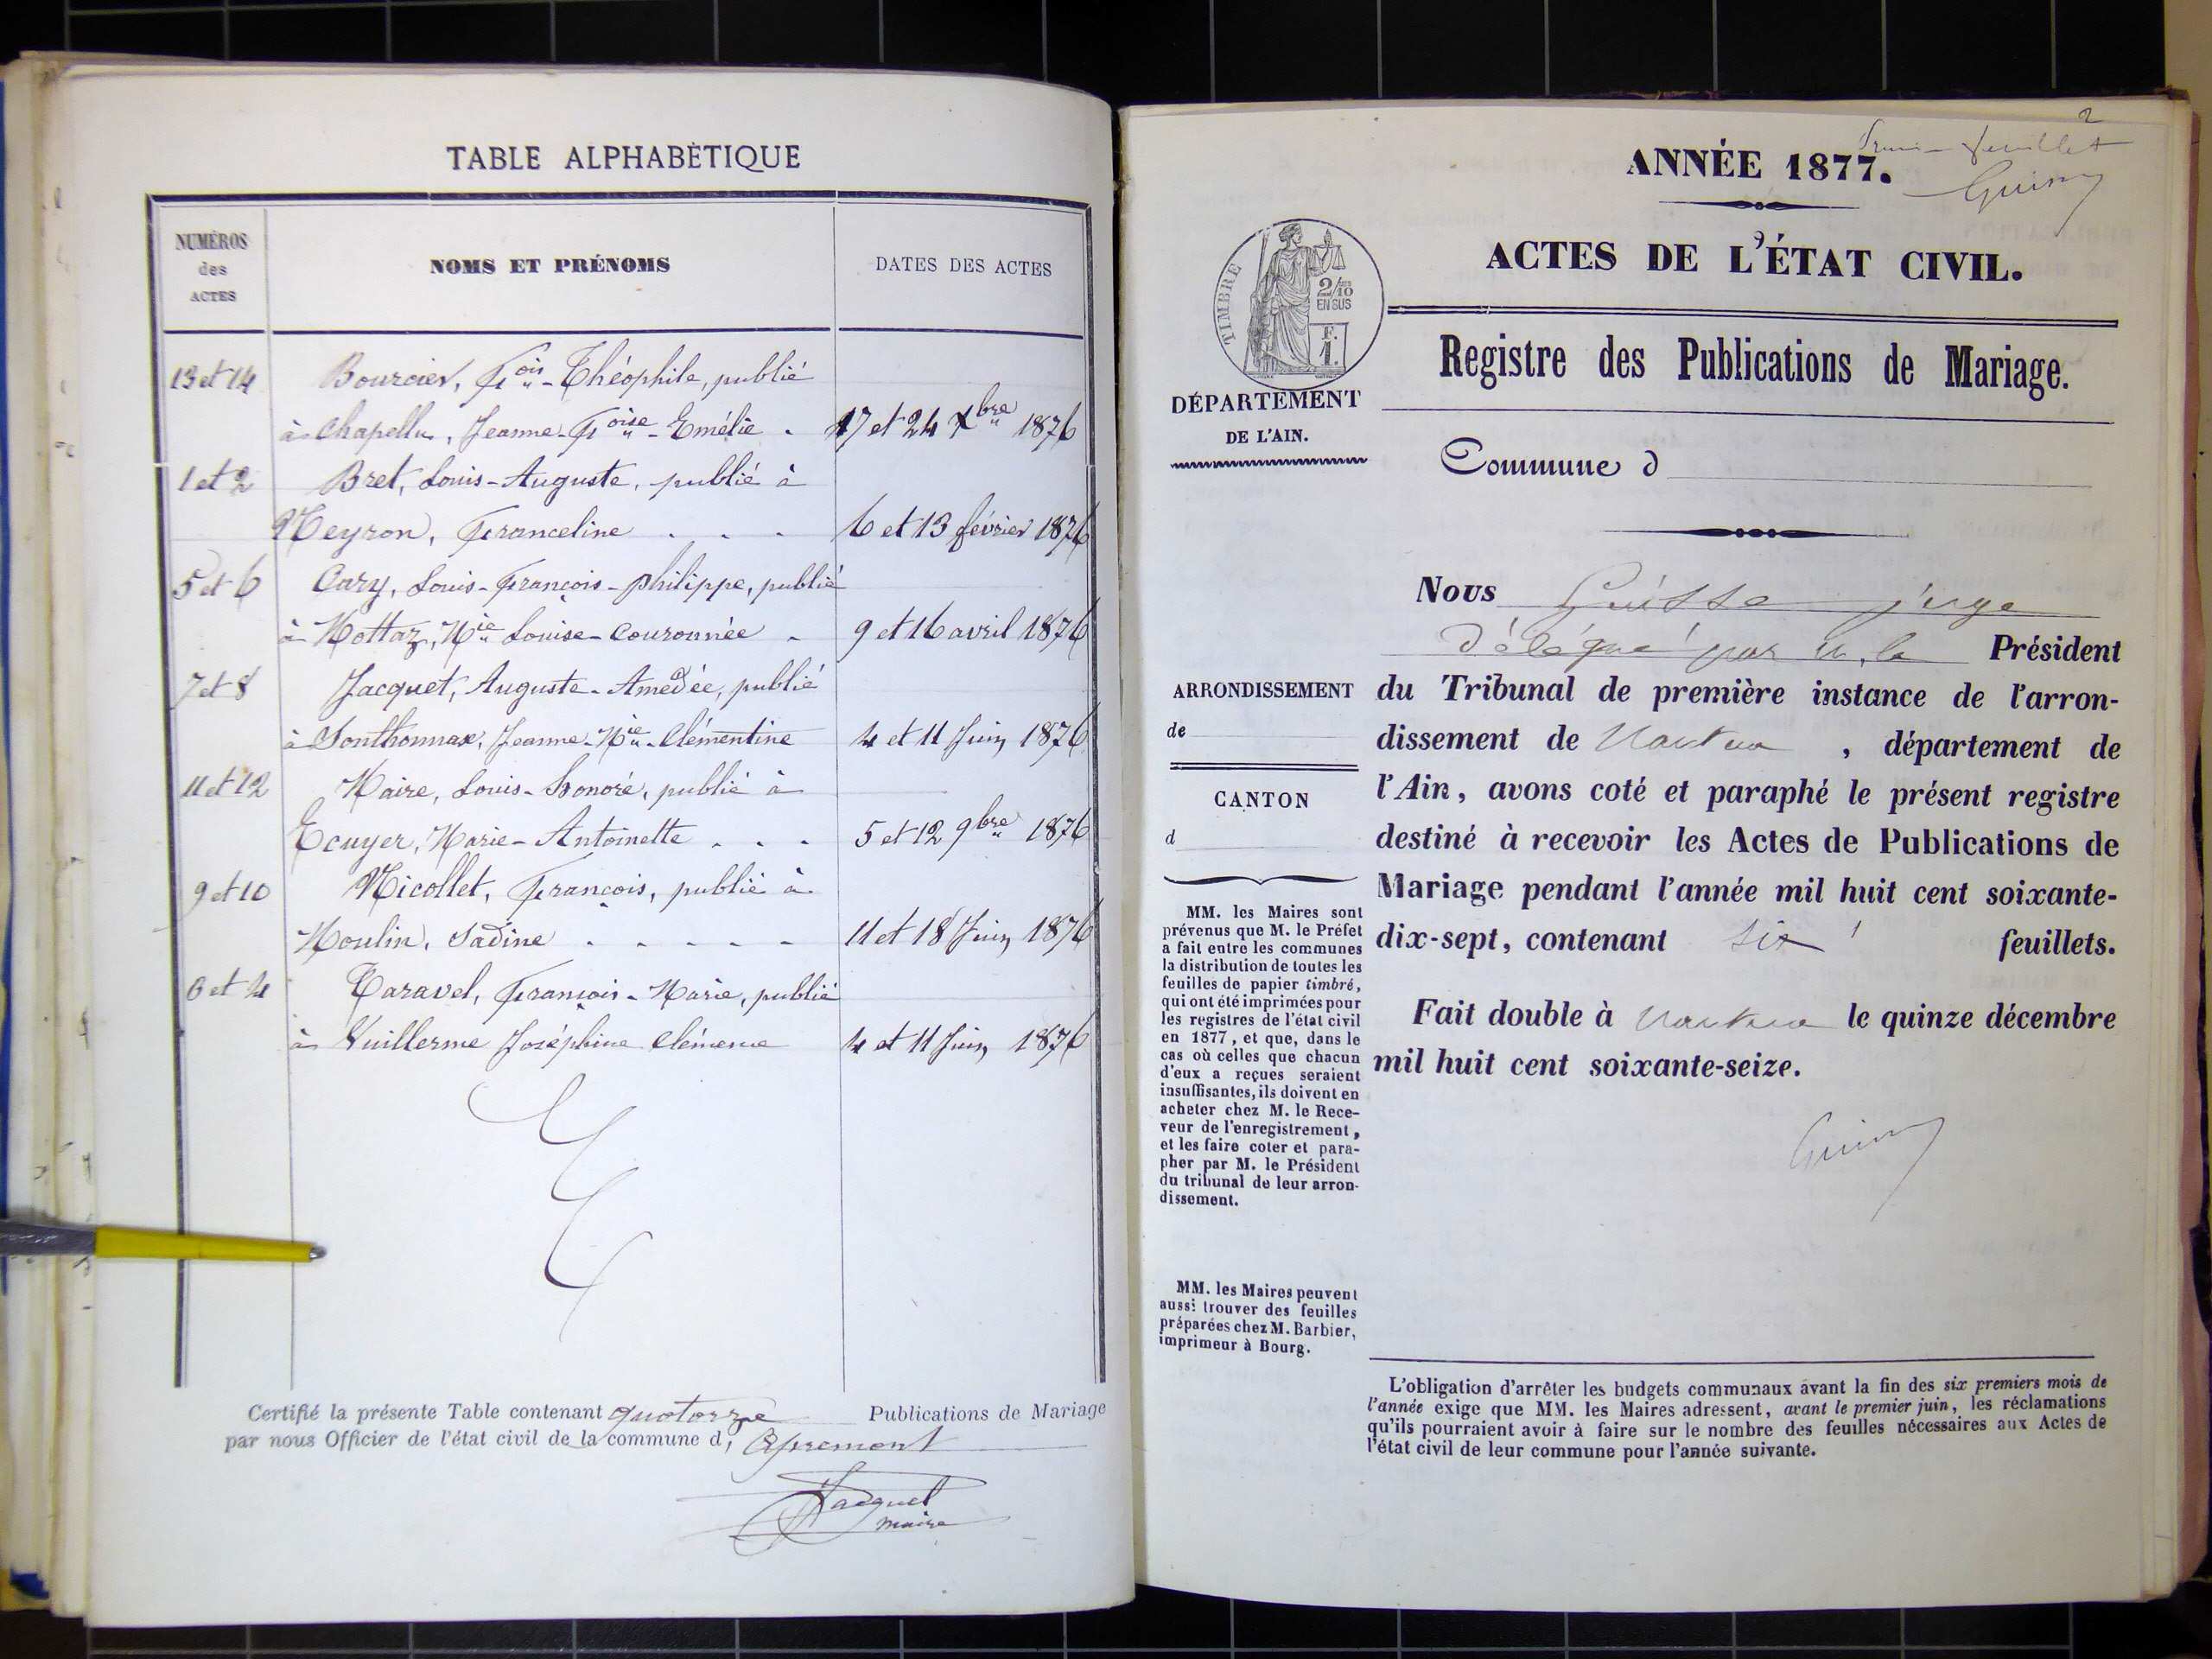 TABLE ALPHABÈTIQUE
NUMÉROS
des
ACTES
NOMS ET PRÉNOMS
DATES DES ACTES
13 et 14 Bourcier, Fois-Théophile, publié
à Chapellu, Jeanne-Foise-Emélie . 17 et 24 Xbre 1876
1 et 2 Bret, Louis-Auguste, publié à
Meyron, Franceline . . . 6 et 13 février 1876
5 et 6 Cary, Louis-François-Philippe, publié
à Mottaz, Mie Louise-Couronnée . 9 et 16 avril 1876
7 et 8 Jacquet, Auguste-Amedée, publié
à Sonthonnax, Jeanne-Mie-Clémentine 4 et 11 Juin 1876
11 et 12 Maire, Louis-Honoré, publié à
Ecuyer, Marie-Antoinette . . . 5 et 12 9bre 1876
9 et 10 Nicollet, François, publié à
Moulin, Sadine . . . . . 11 et 18 Juin 1876
et 4 Taravel, François-Marie, publié
à Vuillerme Joséphine Clémence 4 et 11 Juin 1876
Certifié la présente Table contenant quatorze Publications de Mariage
par nous Officier de l'état civil de la commune d' Apremont
Jacquet
maire
2
feuillet
ANNÉE 1877.
ACTES DE L'ÉTAT CIVIL.
TIMBRE
2/10
EN SUS
F.
1.
Registre des Publications de Mariage.
DÉPARTEMENT
DE L'AIN.
Commune d
Nous juge
délégué par M. le Président
du Tribunal de première instance de l'arron-
dissement de Nantua , département de
l'Ain, avons coté et paraphé le présent registre
destiné à recevoir les Actes de Publications de
Mariage pendant l'année mil huit cent soixante-
dix-sept, contenant six feuillets.
Fait double à Nantua le quinze décembre
mil huit cent soixante-seize.
ARRONDISSEMENT
de
CANTON
d
MM. les Maires sont
prévenus que M. le Préfet
a fait entre les communes
la distribution de toutes les
feuilles de papier timbré,
qui ont été imprimées pour
les registres de l'état civil
en 1877, et que, dans le
cas où celles que chacun
d'eux a reçues seraient
insuffisantes, ils doivent en
acheter chez M. le Rece-
veur de l'enregistrement,
et les faire coter et para-
pher par M. le Président
du tribunal de leur arron-
dissement.
MM. les Maires peuvent
aussi trouver des feuilles
préparées chez M. Barbier,
imprimeur à Bourg.
L'obligation d'arrêter les budgets communaux avant la fin des six premiers mois de
l'année exige que MM. les Maires adressent, avant le premier juin, les réclamations
qu'ils pourraient avoir à faire sur le nombre des feuilles nécessaires aux Actes de
l'état civil de leur commune pour l'année suivante.